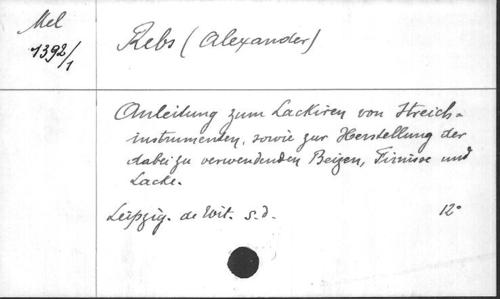 Mel
1392/1
Rebs (Alexander)
Anleitung zum Lackiren von Streich-
instrumenten, sowie zur Herstellung der
dabei zu verwendenden Beizen, Firnisse und
Lacke.
Leipzig. de Wit. s.d. 12°